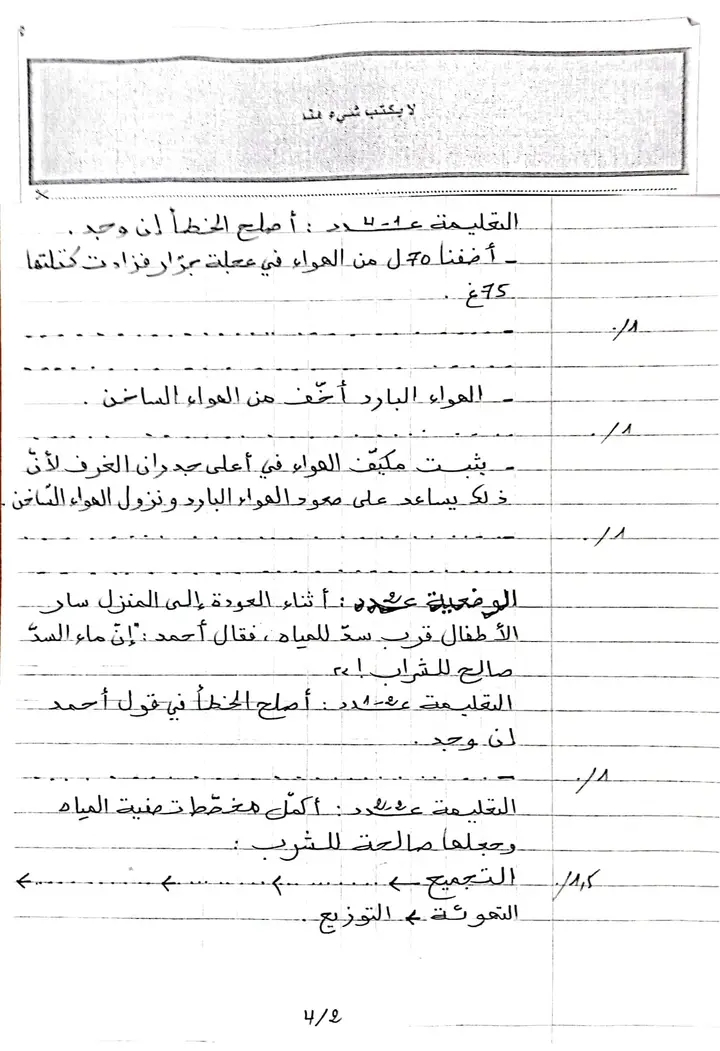 لا يكتب شيء هنا
التعليمة عـ1-4ـدد : أصلح الخطأ إن وجد .
- أضفنا 70ل من الهواء في عجلة جرّار فزادت كتلتها
75غ .
1/.
- الهواء البارد أخّف من الهواء الساخن .
1/.
- يثبت مكيّف الهواء في أعلى جدران الغرف لأنّ
ذلك يساعد على صعود الهواء البارد ونزول الهواء السّاخن .
1/.
الوضعية عـ2ـدد : أثناء العودة إلى المنزل سار
الأطفال قرب سدّ للمياه ، فقال أحمد : "إنّ ماء السدّ
صالح للشراب ! "
التعليمة عـ1-2ـدد : أصلح الخطأ في قول أحمد
إن وجد .
1/.
التعليمة عـ2-2ـدد : أكمّل مخطّط تصفية المياه
وجعلها صالحة للشرب :
التجميع ← .......... ← .......... ← .......... ← 1,5/.
التهوئة ← التوزيع .
4/2